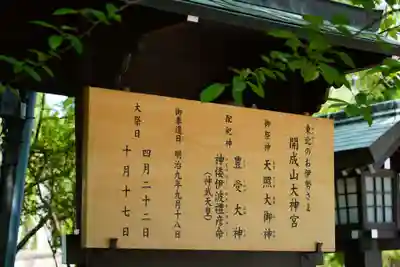 東北のお伊勢さま
開成山大神宮
御祭神 天照大御神
豊受大神
配祀神 神倭伊波禮彦命
(神武天皇)
御奉遷日 明治九年九月十八日
大祭日 四月二十二日
十月十七日